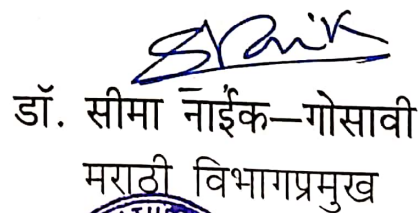 डॉ. सीमा नाईक–गोसावी
मराठी विभागप्रमुख